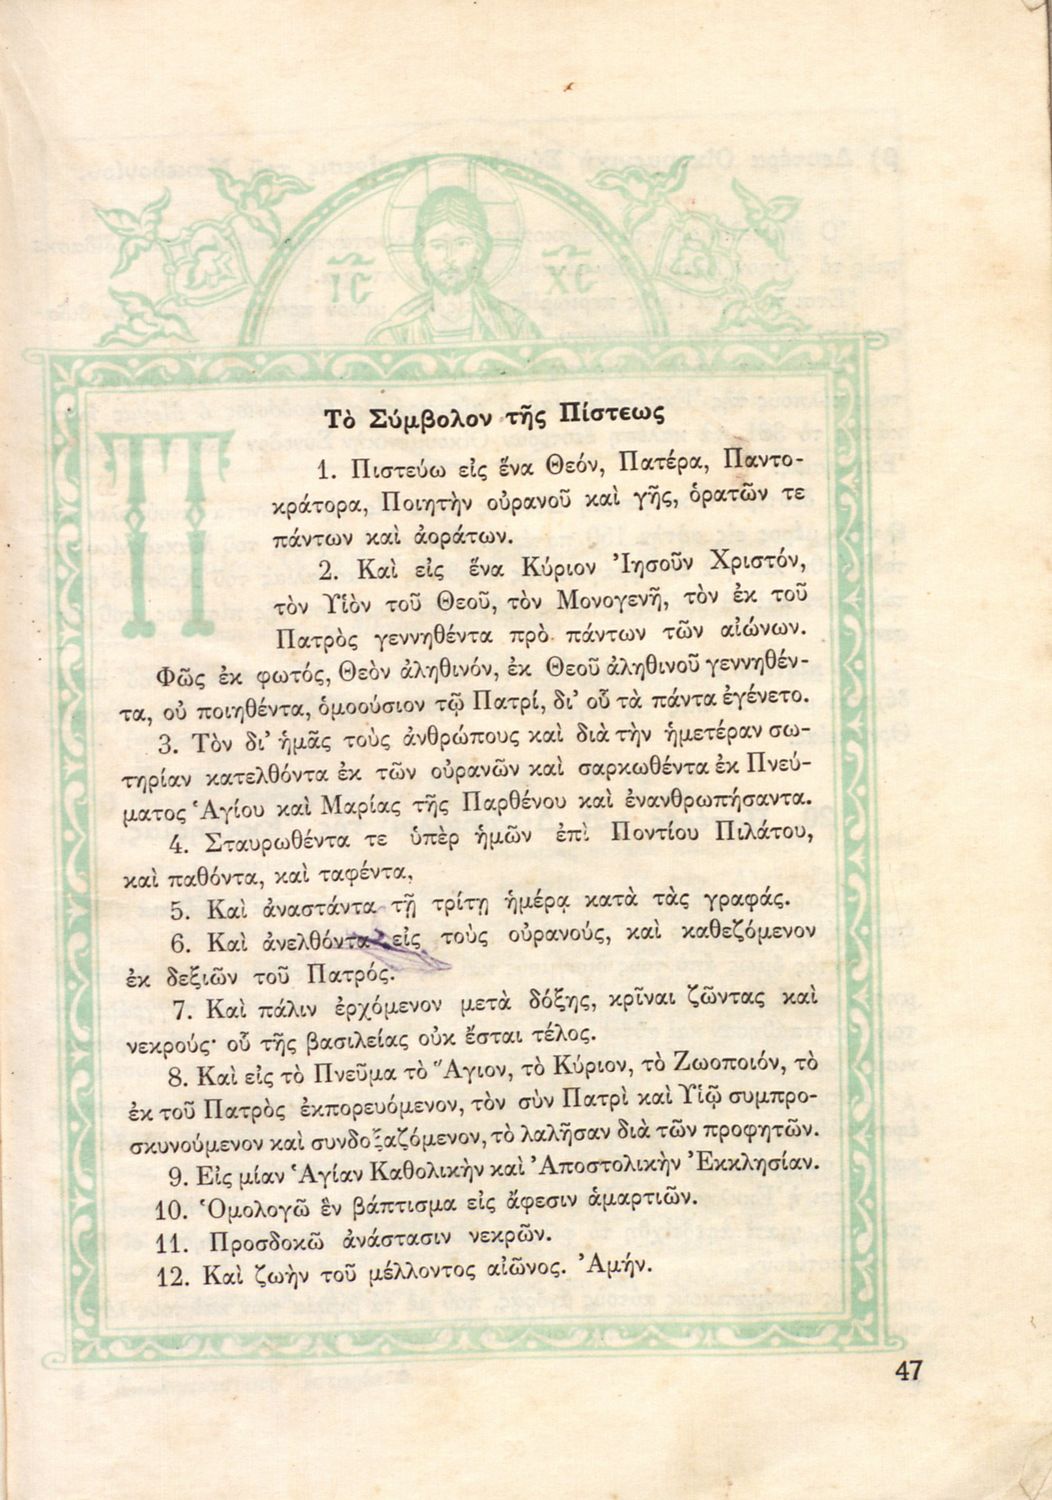 ΙC ΧC
Τὸ Σύμβολον τῆς Πίστεως
Π
1. Πιστεύω εἰς ἕνα Θεόν, Πατέρα, Παντο-
κράτορα, Ποιητὴν οὐρανοῦ καὶ γῆς, ὁρατῶν τε
πάντων καὶ ἀοράτων.
2. Καὶ εἰς ἕνα Κύριον Ἰησοῦν Χριστόν,
τὸν Υἱὸν τοῦ Θεοῦ, τὸν Μονογενῆ, τὸν ἐκ τοῦ
Πατρὸς γεννηθέντα πρὸ πάντων τῶν αἰώνων.
Φῶς ἐκ φωτός, Θεὸν ἀληθινόν, ἐκ Θεοῦ ἀληθινοῦ γεννηθέν-
τα, οὐ ποιηθέντα, ὁμοούσιον τῷ Πατρί, δι' οὗ τὰ πάντα ἐγένετο.
3. Τὸν δι' ἡμᾶς τοὺς ἀνθρώπους καὶ διὰ τὴν ἡμετέραν σω-
τηρίαν κατελθόντα ἐκ τῶν οὐρανῶν καὶ σαρκωθέντα ἐκ Πνεύ-
ματος Ἁγίου καὶ Μαρίας τῆς Παρθένου καὶ ἐνανθρωπήσαντα.
4. Σταυρωθέντα τε ὑπὲρ ἡμῶν ἐπὶ Ποντίου Πιλάτου,
καὶ παθόντα, καὶ ταφέντα,
5. Καὶ ἀναστάντα τῇ τρίτῃ ἡμέρᾳ κατὰ τὰς γραφάς.
6. Καὶ ἀνελθόντα εἰς τοὺς οὐρανούς, καὶ καθεζόμενον
ἐκ δεξιῶν τοῦ Πατρός.
7. Καὶ πάλιν ἐρχόμενον μετὰ δόξης, κρῖναι ζῶντας καὶ
νεκρούς· οὗ τῆς βασιλείας οὐκ ἔσται τέλος.
8. Καὶ εἰς τὸ Πνεῦμα τὸ Ἅγιον, τὸ Κύριον, τὸ Ζωοποιόν, τὸ
ἐκ τοῦ Πατρὸς ἐκπορευόμενον, τὸν σὺν Πατρὶ καὶ Υἱῷ συμπρο-
σκυνούμενον καὶ συνδοξαζόμενον, τὸ λαλῆσαν διὰ τῶν προφητῶν.
9. Εἰς μίαν Ἁγίαν Καθολικὴν καὶ Ἀποστολικὴν Ἐκκλησίαν.
10. Ὁμολογῶ ἓν βάπτισμα εἰς ἄφεσιν ἁμαρτιῶν.
11. Προσδοκῶ ἀνάστασιν νεκρῶν.
12. Καὶ ζωὴν τοῦ μέλλοντος αἰῶνος. Ἀμήν.
47